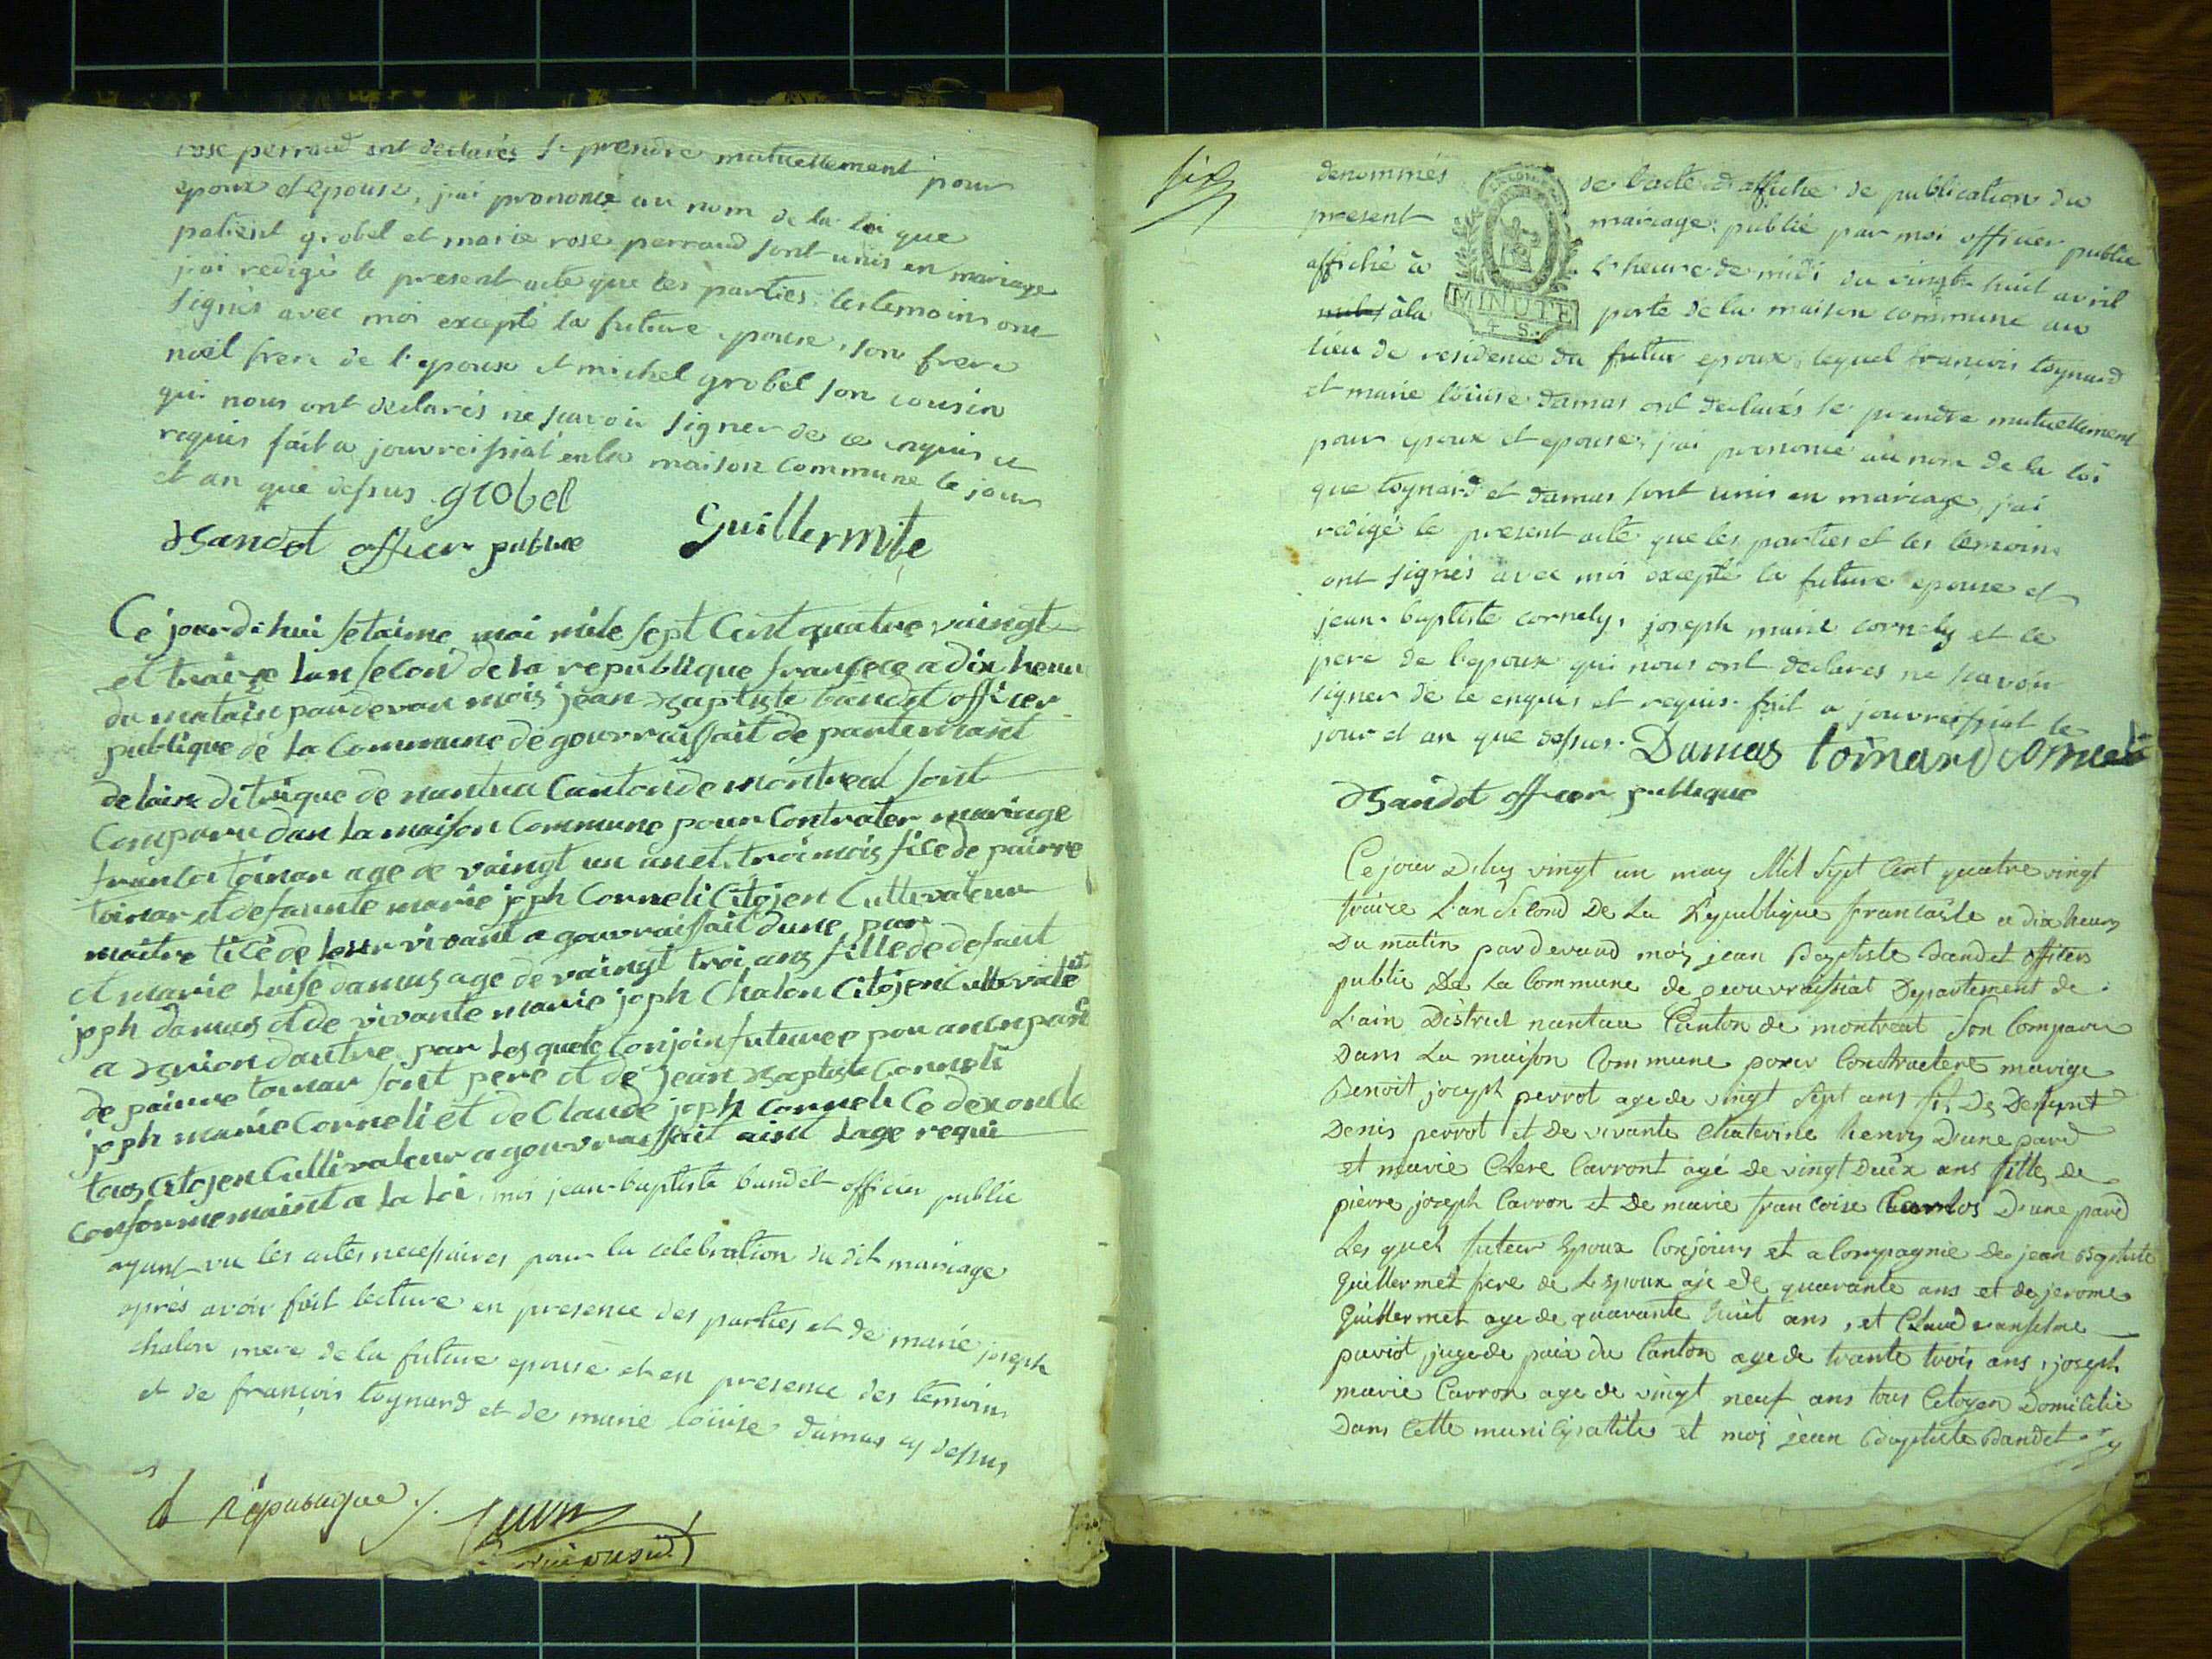 rose perraud ont declarés se prendre mutuellement pour
epoux et epouse, j'ai prononcé au nom de la loi que
patient grobel et marie rose perraud sont unis en mariage
j'ai redigé le present acte que les parties les temoins ont
signés avec moi excepté la future epouse, son frere
noël frere de l'epoux et michel grobel son cousin
qui nous ont declarés ne scavoir signer de ce enquis et
requis fait a jouvreissiat en la maison commune le jour
et an que dessus grobel
Bandet officer publice Guillermite
Ce jourdihui setaime mai mile sept Cent quatre vaingt
et traize lan second de la republique francece a dix heur
du matain pardevan mois jean Baptiste bandet officer
publique de la Commune de gouvraissait departemant
de lain ditrique de nantua Canton de montreal sont
Comparu dan la maison Commune pour Contrater mariage
francoi toinar age de vaingt un an et troi mois fice de pairre
toinar et defaunte marie jph Corneli Citojen Cultivateur
maitre ticé de leur vivant a gouvraissait dune par
et marie loise damas age de vaingt troi ans fille de defaut
jph damas et de vivante marie jph Chalon Citojen Cultivate
a Brion dautre par les quele Conjoin futurec
de pairre toinar sont pere et de jean Baptiste Corneli
jph marie Corneli et de Claude jph Corneli Ce dexoncle
tous Citojen Cultivateur a gouvraissait aint lage requi
conformemaint a la loi, moi jean-baptiste bandet officier public
ayant vu les actes necessaires pour la celebration du dit mariage
aprés avoir fait lecture en presence des parties et de marie joseph
chalon mere de la future epouse et en presence des temoins
et de françois toynard et de marie loüise damas cy dessus
d République
six
denommés de l'acte d'affiche de publication du
present mariage publié par moi officier public
affiché à l'heure de midi du vingt huit avril
à la porte de la maison commune au
MINUTE
lieu de residence du futur epoux, lequel françois toynard
et marie loüise damas ont declarés se prendre mutuellement
pour epoux et epouse, j'ai prononcé au nom de la loi
que toynard et damas sont unis en mariage, j'ai
redigé le present acte que les parties et les temoins
ont signés avec moi excepté la future epouse et
jean-baptiste cornely, joseph marie cornely et le
pere de l'epoux qui nous ont declares ne scavoir
signer de ce enquis et requis. fait a jouvreissiat le
jour et an que dessus. Damas toinard Corneli
Bandet officer publique
Ce jour Dhuy vingt un may Mil Sept Cent quatre vingt
traize L'an Second De La Republique francaise a dix heurs
Du matin pardevand moy jean Baptiste Bandet officiers
public De La Commune de geouvraissiat Departement de
L'ain District nantua Canton de montreal Son Comparu
Dans La maison Commune pour Contractere mariage
Benoit joseph perrot age de vingt Sept ans fis De Defunt
Denis perrot et De vivante Chaterine henry D'une pard
et marie Clere Carront agé de vingt Deux ans fille de
pierre joseph Carron et De marie francoise D'une pard
Les quel futeur Epoux Conjoins et a Compagnie de jean Baptiste
Guillermet frere de L'Epoux aje De quarante ans et de jerome
Guillermet age de quarante huit ans, et Claude anselme
paviot juge de paix du Canton age de trante trois ans, joseph
marie Carron age de vingt neuf ans tous Citoyen Domicilié
Dans Cette municipalités et moy jean Baptiste Bandet